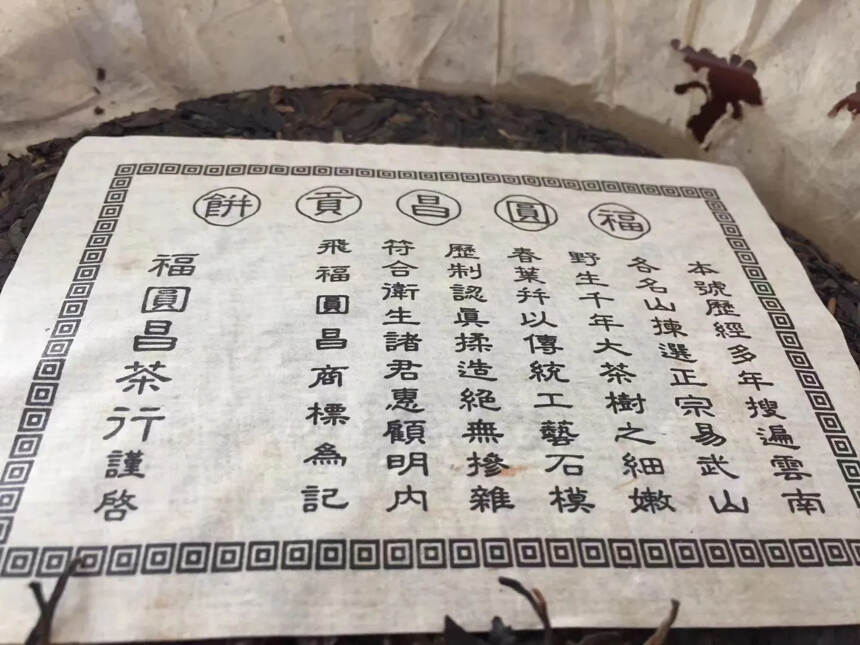 福圓昌貢餅
本號歷經多年搜遍雲南
各名山揀選正宗易武山
野生千年大茶樹之細嫩
春葉并以傳統工藝石模
歷制認眞揉造絕無摻雜
符合衛生諸君惠顧明內
飛福圓昌商標為記
福圓昌茶行謹啓